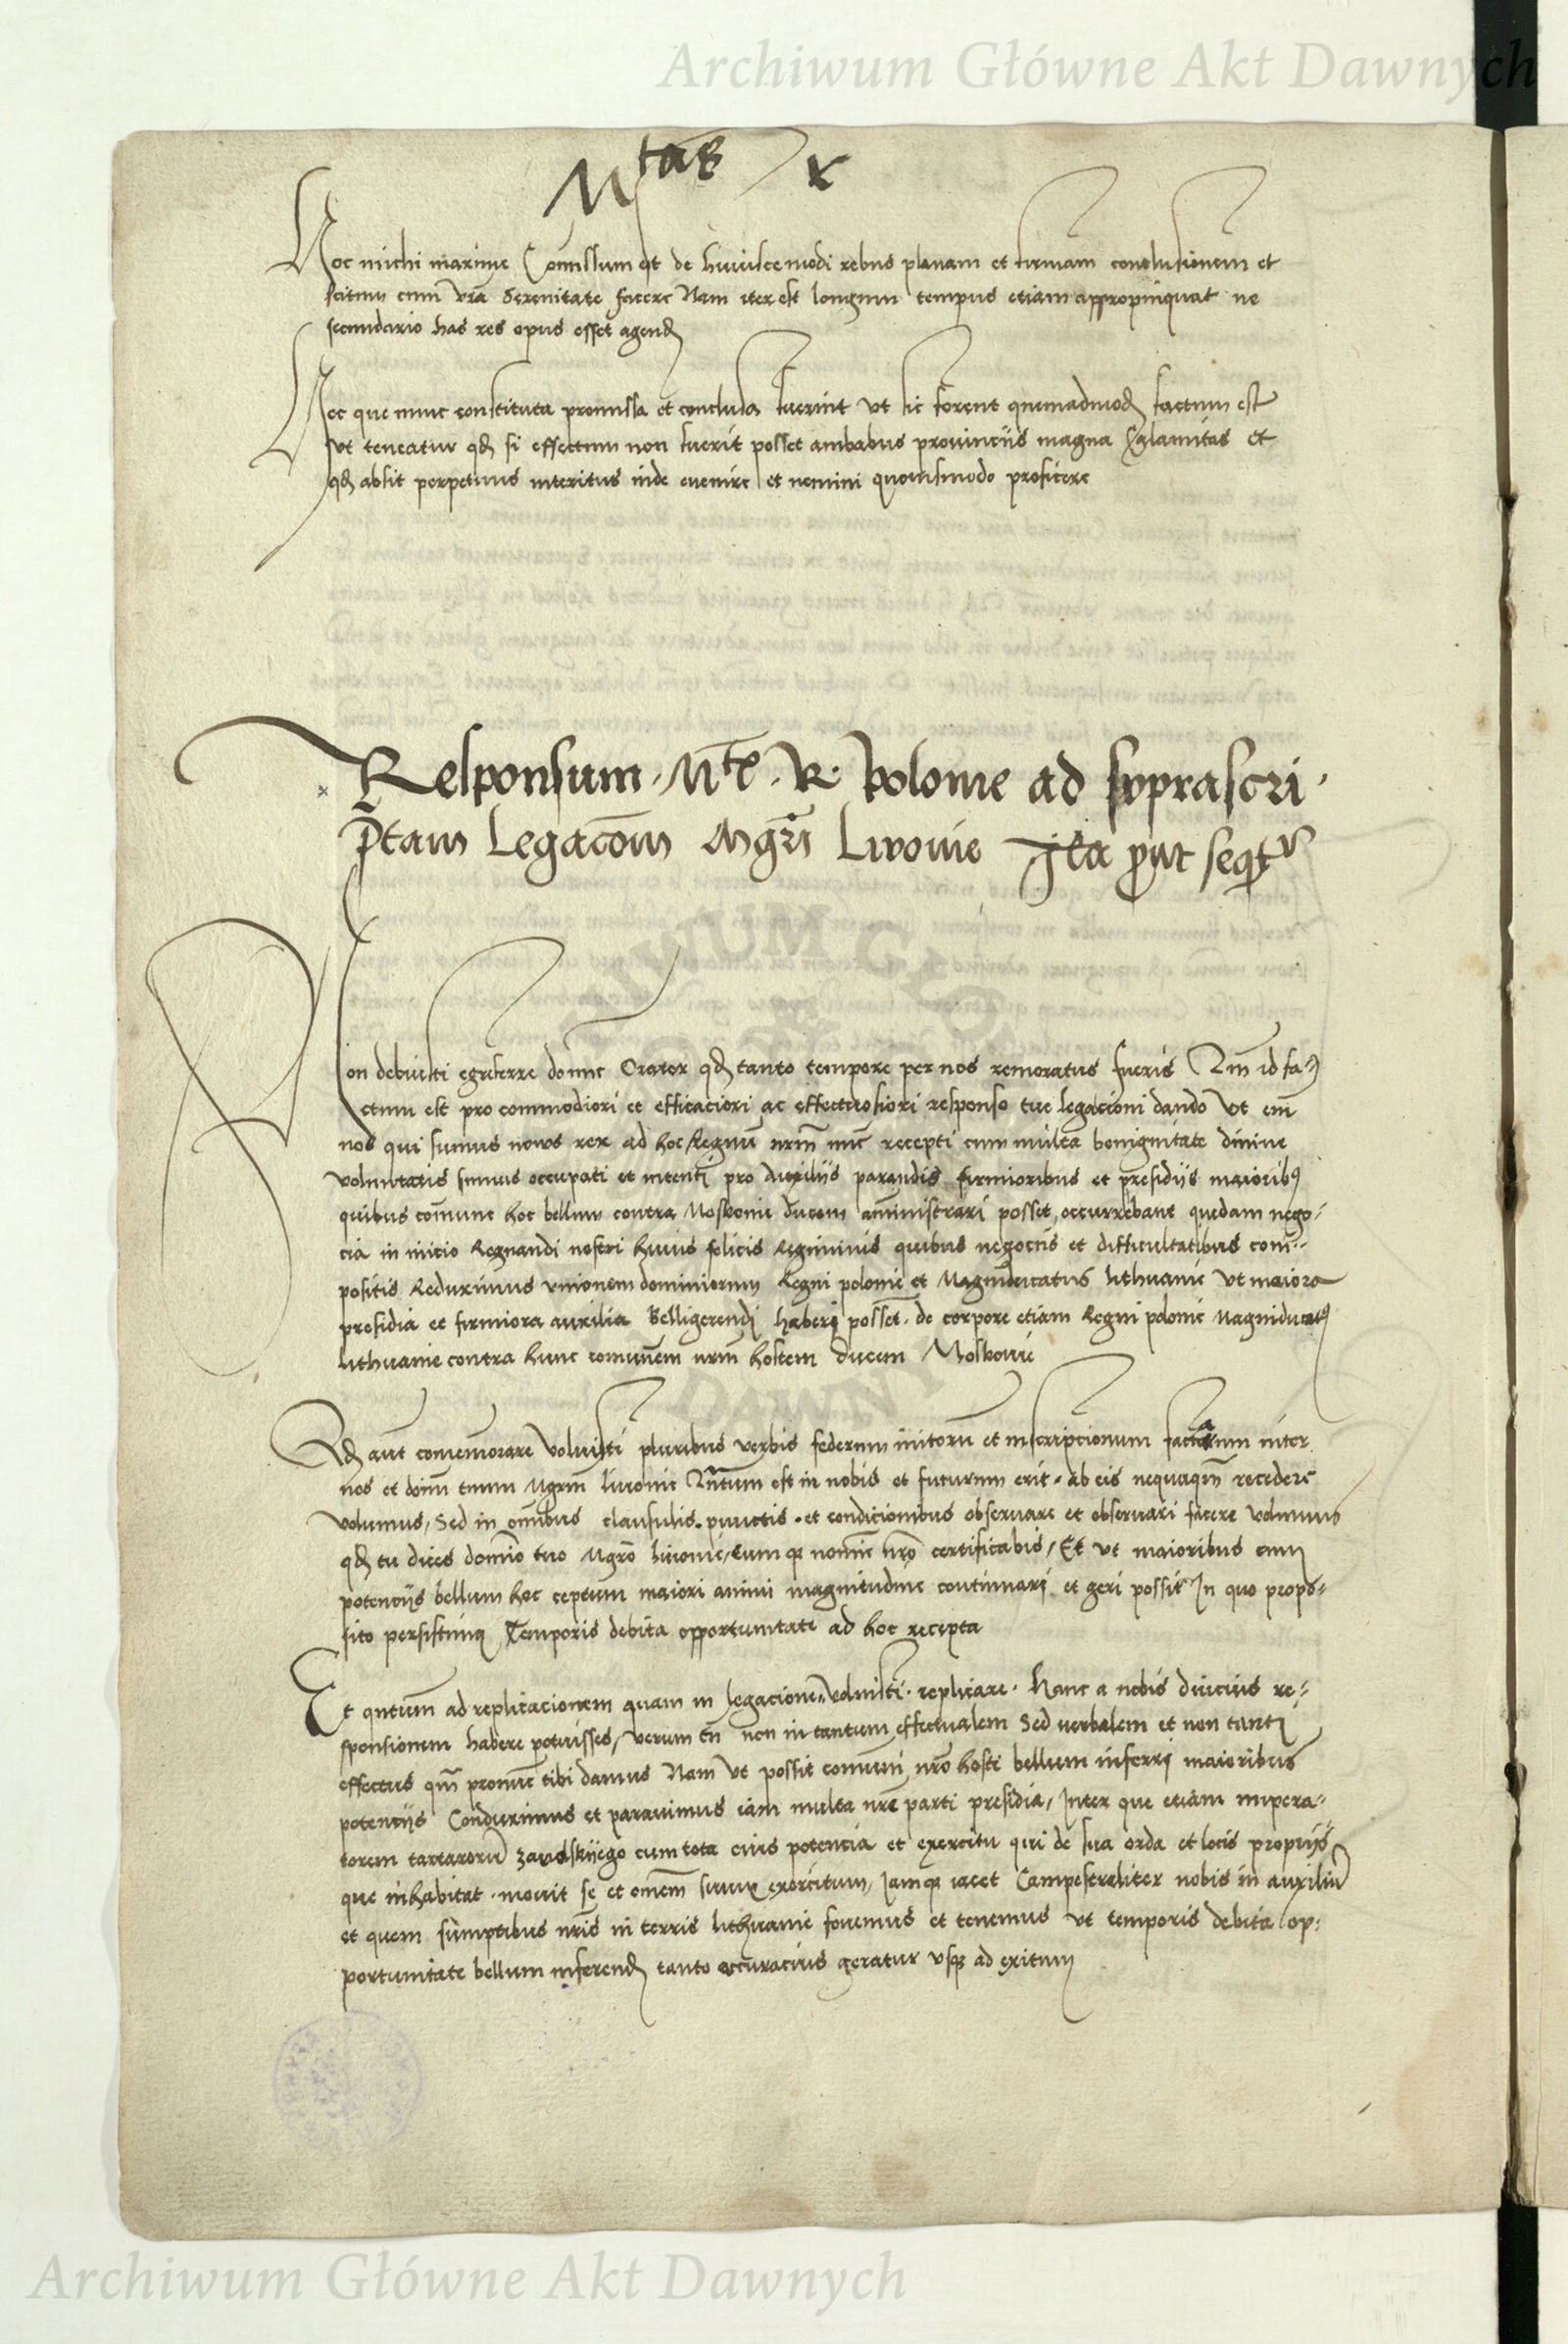 Archiwum Główne Akt Dawnych
Mtas R
Hoc michi maxime Comissum est de huiuscemodi rebus planam et firmam conclusionem et
scitum cum vra Serenitate facere Nam iter est longum tempus etiam appropinquat ne
secundario has res opus esset agend
Hec que nunc constituta promissa et conclusa fuerint vt sic forent quemadmod factum est
vt teneatur qd si effectum non fuerit posset ambabus provinciis magna Calamitas et
qd absit perpetuus interitus inde evenire et nemini quovismodo proficere
Responsum Mte R polonie ad suprascri
ptam Legacom Mgri Livonie Ita put seqtr
Non debuisti egreferre domine Orator qd tanto tempore per nos remoratus fueris Qm id fa
ctum est pro commodiori et efficaciori ac effectuosiori responso tue legacioni dando Vt em
nos qui sumus novus rex ad hoc Regnu nrm nuc recepti cum multa benignitate divine
voluntatis simus occupati et intenti pro Auxilijs parandis firmioribus et presidijs maioribus
quibus comune hoc bellum contra Moskovie ducem amministrari posset, occurrebant quedam nego-
cia in inicio Regnandi nostri huius felicis Regiminis quibus negociis et difficultatibus com-
positis Reduximus vnionem dominiorum Regni polonie et Magniducatus lithuanie Vt maiora
presidia et firmiora auxilia Belligerendi haberi possent de corpore etiam Regni polonie Magniducatus
lithuanie contra hunc comunem nrm hostem ducem Moskovie
Qd aut comemorare voluisti pluribus verbis federum initoru et inscripcionum factarum inter
nos et dominu tuum Mgrm livonie Qntum est in nobis et futurum erit ab eis nequaqm recedere
volumus, Sed in omibus clausulis punctis et condicionibus observare et observari facere volumus
qd tu dices domino tuo Mgro livonie, eum q nomine nro certificabis, Et vt maioribus cum
potencijs bellum hoc ceptum maiori animi magnitudine continuari et geri possit In quo propo-
sito persistimus Temporis debita opportunitate ad hoc recepta
Et qntum ad replicacionem quam in legacione voluisti replicare Hanc a nobis diucius re-
sponsionem habere potuisses, verum tn non in tantum effectualem Sed verbalem et non tanti
effectus qm pronunc tibi damus Nam vt possit comuni nro hosti bellum inferri maioribus
potencijs Conduximus et paravimus iam multa nre parti presidia, Inter que etiam impera-
torem tartaroru zavolskijego cum tota eius potencia et exercitu qui de sua orda et locis propriis
que inhabitat movit se et omem suum exercitum, Iamq iacet Campestraliter nobis in auxiliu
et quem sumptibus nris in terris lithuanie fovemus et tenemus vt temporis debita op-
portunitate bellum inferend tanto accuracius geratur vsq ad exitum
Archiwum Główne Akt Dawnych